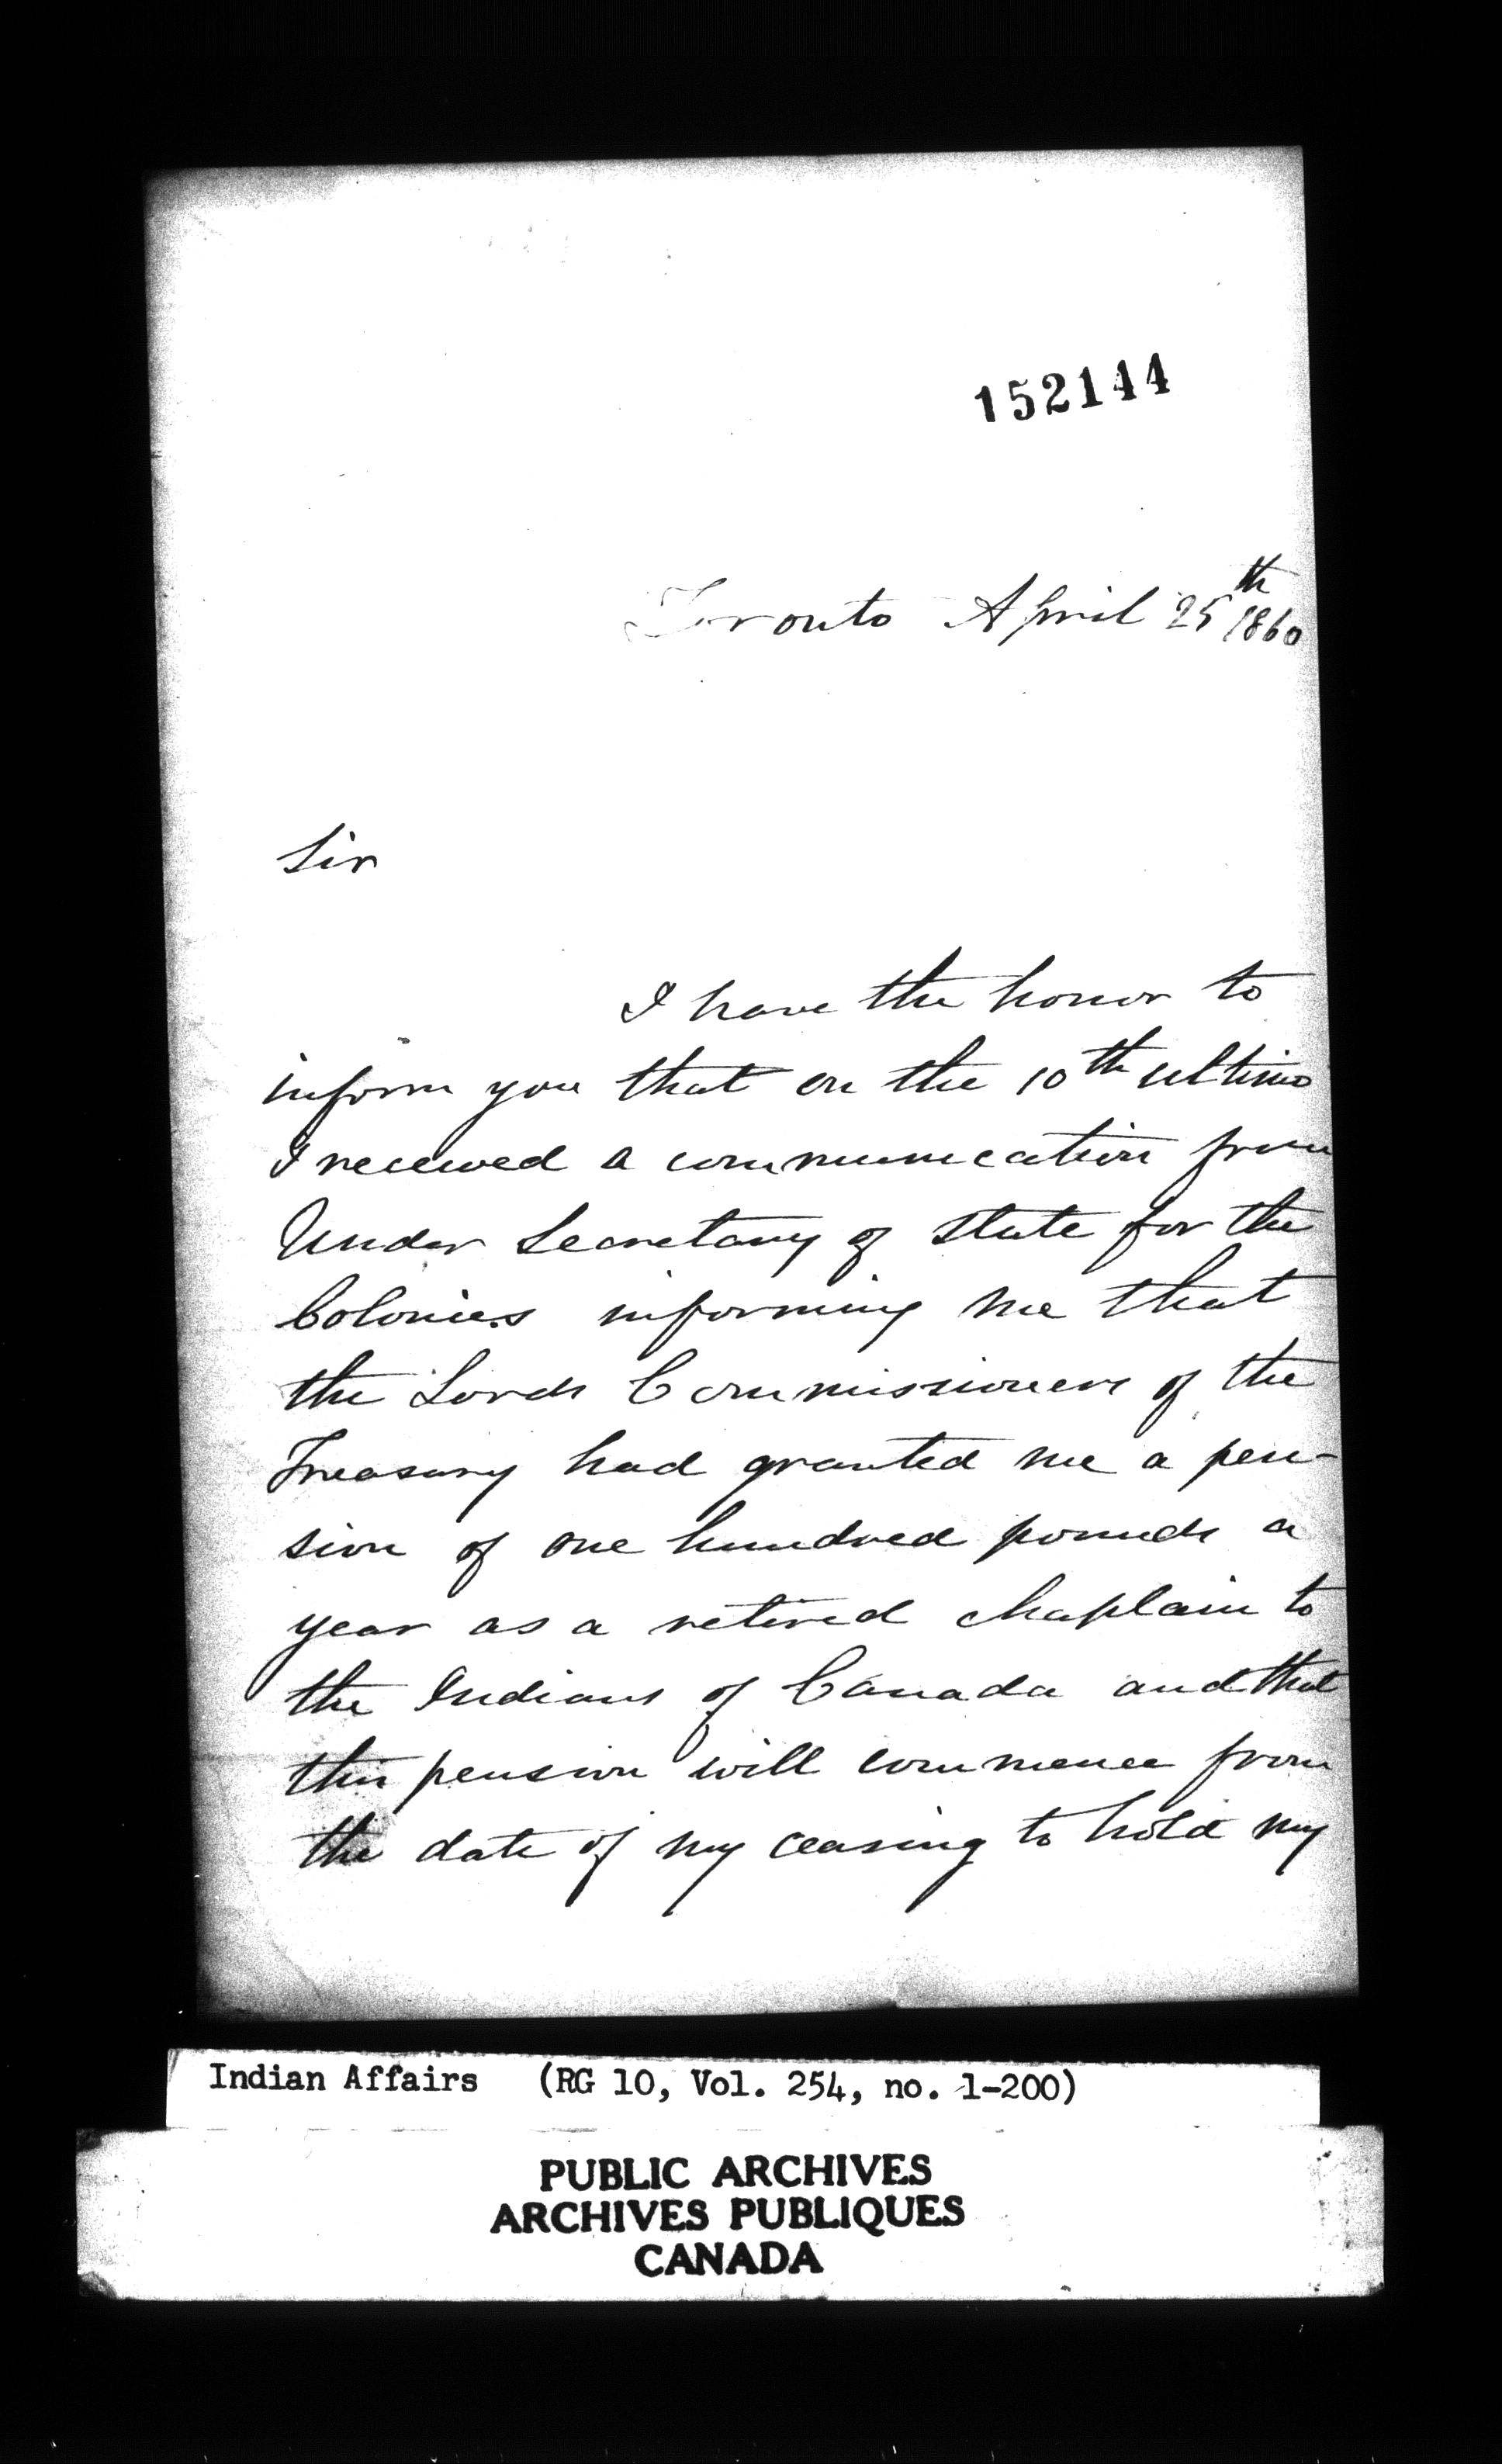 152144
Toronto April 25th 1860
Sir
I have the honor to
inform you that on the 10th ultimo
I received a communication from
Under Secretary of State for the
Colonies informing me that
the Lords Commissioners of the
Treasury had granted me a pen-
sion of one hundred pounds a
year as a retired chaplain to
the Indians of Canada and that
this pension will commence from
the date of my ceasing to hold my
Indian Affairs (RG 10, Vol. 254, no. 1-200)
PUBLIC ARCHIVES
ARCHIVES PUBLIQUES
CANADA